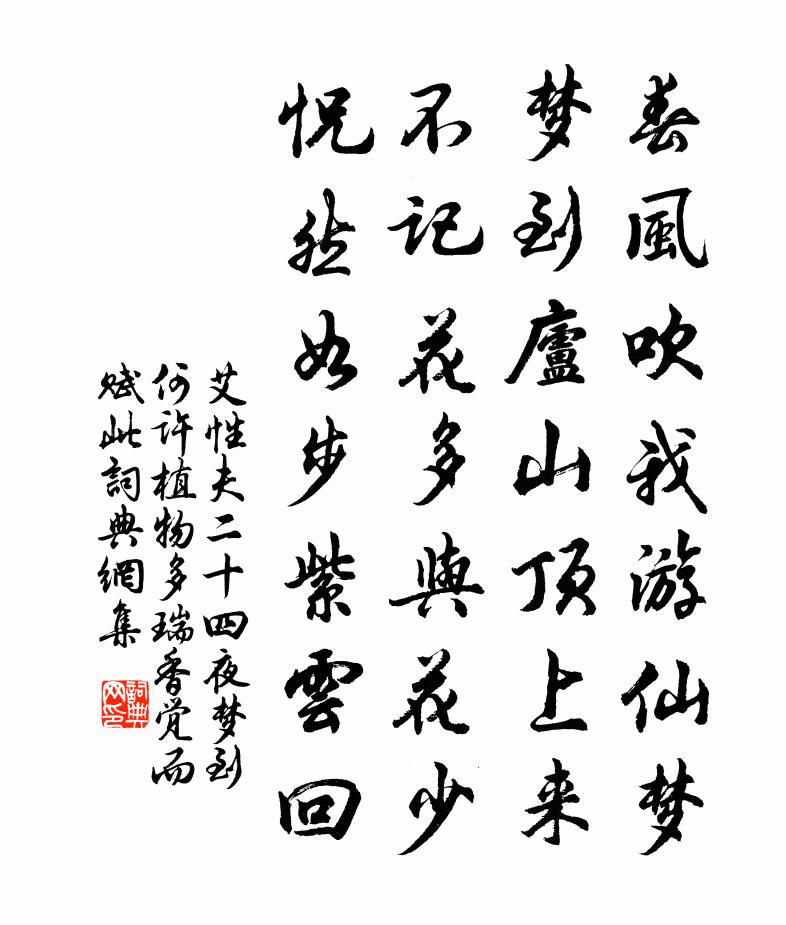 春風吹我游仙梦
梦到廬山頂上来
不记花多與花少
怳然如步紫雲回
艾性夫二十四夜梦到
何许植物多瑞香觉而
赋此詞典網集
詞典
网印